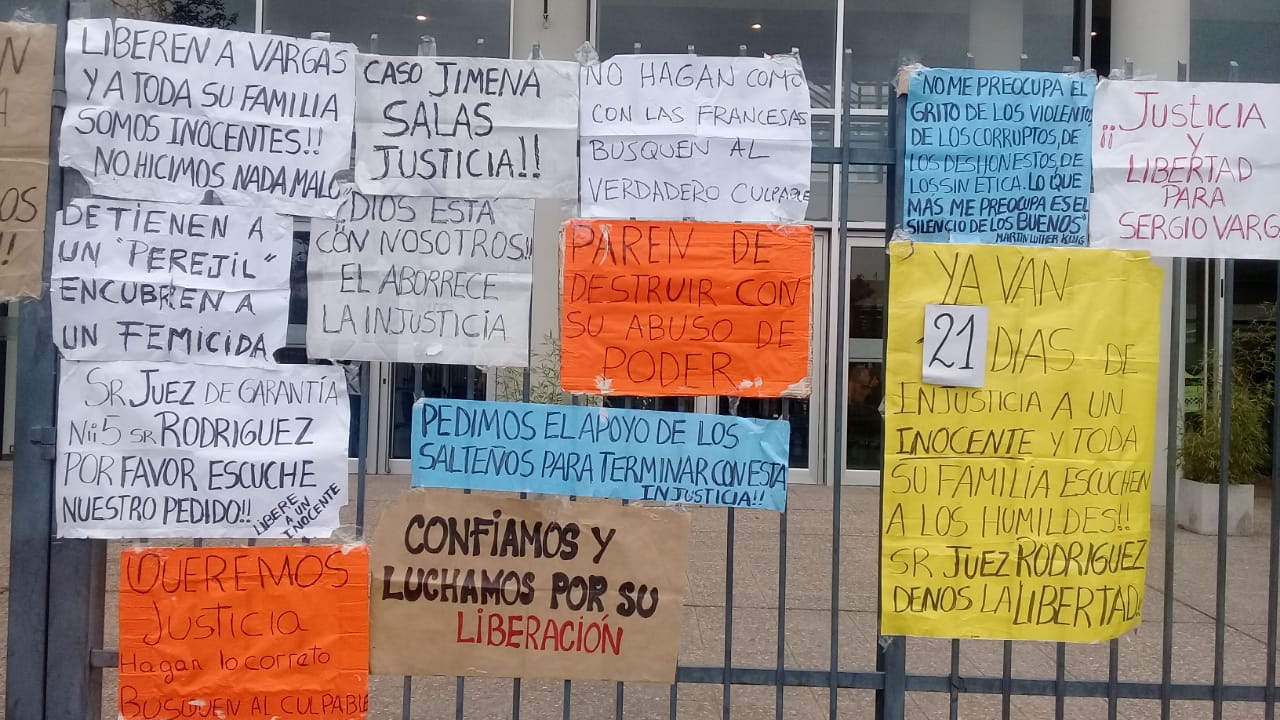 LIBEREN A VARGAS
Y A TODA SU FAMILIA
SOMOS INOCENTES!!
NO HICIMOS NADA MALO
CASO JIMENA
SALAS
JUSTICIA!!
NO HAGAN COMO
CON LAS FRANCESAS
BUSQUEN AL
VERDADERO CULPABLE
"NO ME PREOCUPA EL
GRITO DE LOS VIOLENTOS
DE LOS CORRUPTOS, DE
LOS DESHONESTOS, DE
LOS SIN ETICA. LO QUE
MAS ME PREOCUPA ES EL
SILENCIO DE LOS BUENOS"
MARTIN LUTHER KING
¡¡ JUSTICIA
Y
LIBERTAD
PARA
SERGIO VARG
DETIENEN A
UN "PEREJIL"
ENCUBREN A
UN FEMICIDA
DIOS ESTÁ
CON NOSOTROS!!
EL ABORRECE
LA INJUSTICIA
PAREN DE
DESTRUIR CON
SU ABUSO DE
PODER
YA VAN
21 DIAS DE
INJUSTICIA A UN
INOCENTE Y TODA
SU FAMILIA ESCUCHEN
A LOS HUMILDES!!
SR JUEZ RODRIGUEZ
DENOS LA LIBERTAD
SR JUEZ DE GARANTÍA
Nii5 SR RODRIGUEZ
POR FAVOR ESCUCHE
NUESTRO PEDIDO!!
LIBERE
A UN
INOCENTE
PEDIMOS EL APOYO DE LOS
SALTEÑOS PARA TERMINAR CON ESTA
INJUSTICIA!!
CONFIAMOS Y
LUCHAMOS POR SU
LIBERACIÓN
QUEREMOS
JUSTICIA
Hagan lo correto
BUSQUEN AL CULPABLE